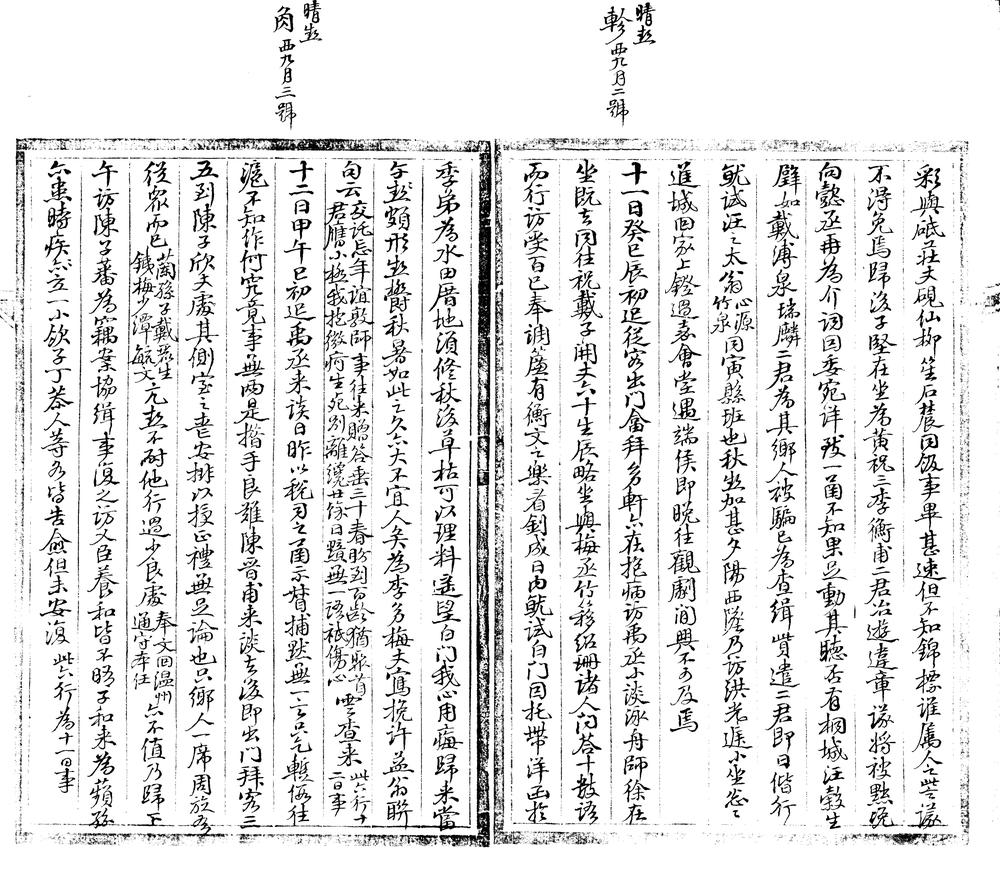 晴熱
軫西九月二號
彩與砥莊丈硯仙柳笙石農同飯事畢甚速但不知錦標誰屬人之
不得免焉歸後子堅在坐為黃祝三李衡甫二君冶遊違章議將被黜挽
向懿丞冉為介詞因委宛詳致一函不知果足動其聽否有桐城汪穀生
譬如戴溥泉瑞麟二君為其鄉人被騙已為查緝貲遣二君即日偕行
魷試汪之太翁心源竹泉同寅縣班也秋熱加甚夕陽西墜乃訪洪老遲小坐
進城回家上鐙過嘉會堂遇端侯即晚往觀劇閒興不可及焉
十一日癸巳辰初起從容出門龠拜多軒六在抱病訪禹丞小談泳舟師徐在
坐既去同往祝戴子開丈六十生辰略坐與梅丞竹移紹珊諸人問答十數語
而行訪雯百已奉調簾有衡文之樂看釗成日內魷試白門因托帶洋函於
晴熱
角西九月三號
季弟為水田厝地須修秋後草枯可以理料遙望白門我心用痗歸來當
午熱頗形熱鬱秋暑如此之久六大不宜人矣為李多梅丈寫挽許益翁聯
句云交託忘年誼敦師事往來贈答垂三十春盼到百齡猶聚首
君膺小極我抱微疴生死別離纔廿餘日題無一語祇傷心 雯查來 此六行十二日事
十二日甲午巳初起禹丞來談日昨以稅司之函示督捕默無一言只乞暫假往
滬不知作何究竟事無兩是措手良難陳晉甫來談去後即出門拜客三
五到陳子欣丈處其側室之喪安排以授正禮無足論也只鄉人一席周旋為
從眾而已蘭孫子戴
鐵梅少潭毓文 亢熱不耐他行過少良處 奉文回溫州
通守本任 六不值乃歸下
午訪陳子蕃為竊案協緝事復之訪久臣養和皆不晤子和來為蘋孫
六患時疾六立一小飲子丁荅人等處皆告愈但未安復 此六行為十一日事